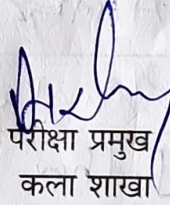 परीक्षा प्रमुख
कला शाखा